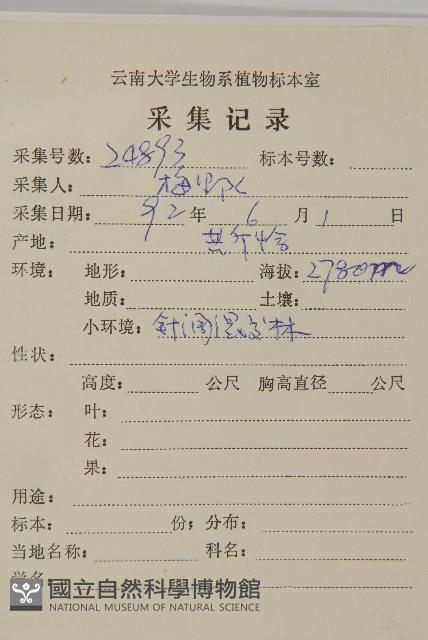 云南大学生物系植物标本室
采集记录
采集号数: 24893 标本号数:
采集人:
采集日期: 92 年 6 月 1 日
产地:
环境: 地形: 海拔: 2780m
地质: 土壤:
小环境: 针阔混交林
性状:
高度: 公尺 胸高直径 公尺
形态: 叶:
花:
果:
用途:
标本: 份; 分布:
当地名称: 科名:
学名:
國立自然科學博物館
NATIONAL MUSEUM OF NATURAL SCIENCE